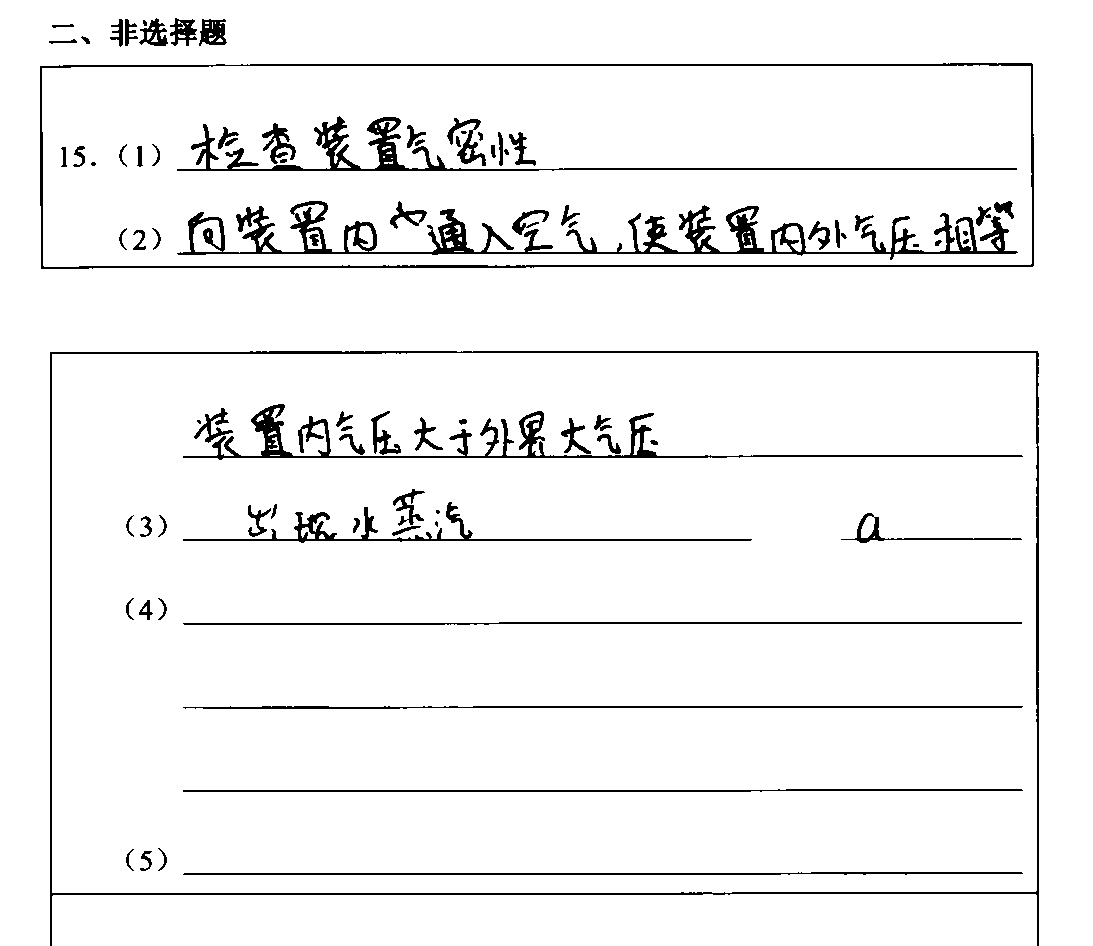 二、非选择题
15.（1）检查装置气密性
（2）向装置内通入空气,使装置内外气压相等
装置内气压大于外界大气压
（3）出现水蒸汽 a
（4）
（5）